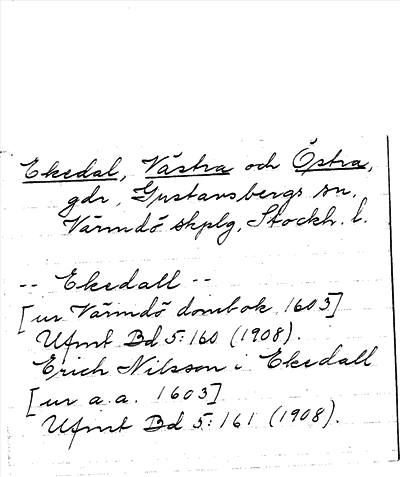 Ekedal, Västra och Östra,
gdr, Gustavsbergs sn.
Värmdö skplg, Stockh. l.
-- Ekedall --
[ur Värmdö dombok 1603]
Ufmt Bd 5:160 (1908).
Erich Nilsson i Ekedall
[ur a.a. 1603]
Ufmt Bd 5:161 (1908).